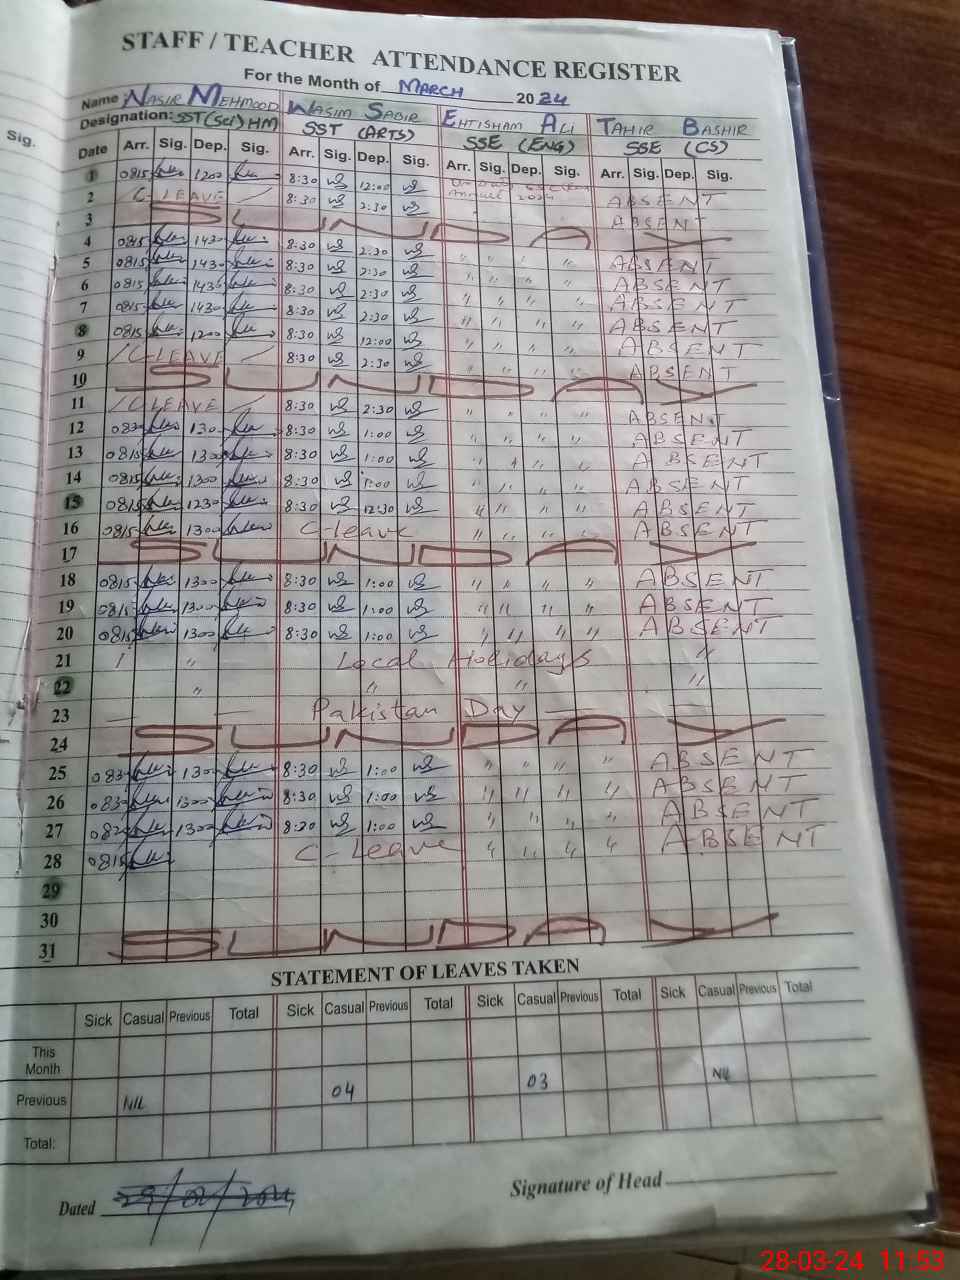 Sig.
STAFF / TEACHER ATTENDANCE REGISTER
For the Month of MARCH 2024
Name NASIR MEHMOOD WASIM SABIR EHTISHAM ALI TAHIR BASHIR
Designation: SST (Sci) HM SST (ARTS) SSE (ENG) SSE (CS)
Date Arr. Sig. Dep. Sig. Arr. Sig. Dep. Sig. Arr. Sig. Dep. Sig. Arr. Sig. Dep. Sig.
1 0815 1200 8:30 12:00 ABSENT
2 C-LEAVE 8:30 2:30 August 2024 ABSENT
3
4 0815 1430 8:30 2:30 " " " " ABSENT
5 0815 1430 8:30 2:30 " " " " ABSENT
6 0815 1430 8:30 2:30 " " " " ABSENT
7 0815 1430 8:30 2:30 " " " " ABSENT
8 0815 1200 8:30 12:00 " " " " ABSENT
9 C-LEAVE 8:30 2:30 " " " " ABSENT
10
11 C-LEAVE 8:30 2:30 " " " " ABSENT
12 130 8:30 1:00 " " " " ABSENT
13 0815 1300 8:30 1:00 " " " " ABSENT
14 0815 1300 8:30 1:00 " " " " ABSENT
15 0815 1230 8:30 12:30 " " " " ABSENT
16 0815 1300 C-leave " " " " ABSENT
17
18 0815 1300 8:30 1:00 " " " " ABSENT
19 0815 1300 8:30 1:00 " " " " ABSENT
20 0815 1300 8:30 1:00 " " " " ABSENT
21 " Local Holidays "
22 " " " "
23 Pakistan Day
24
25 083 1300 8:30 1:00 " " " " ABSENT
26 083 1300 8:30 1:00 " " " " ABSENT
27 1300 8:30 1:00 " " " " ABSENT
28 0815 C-Leave " " " " ABSENT
29
30
31
STATEMENT OF LEAVES TAKEN
Sick Casual Previous Total Sick Casual Previous Total Sick Casual Previous Total Sick Casual Previous Total
This Month
Previous NIL 04 03 NIL
Total:
Dated
Signature of Head
28-03-24 11:53